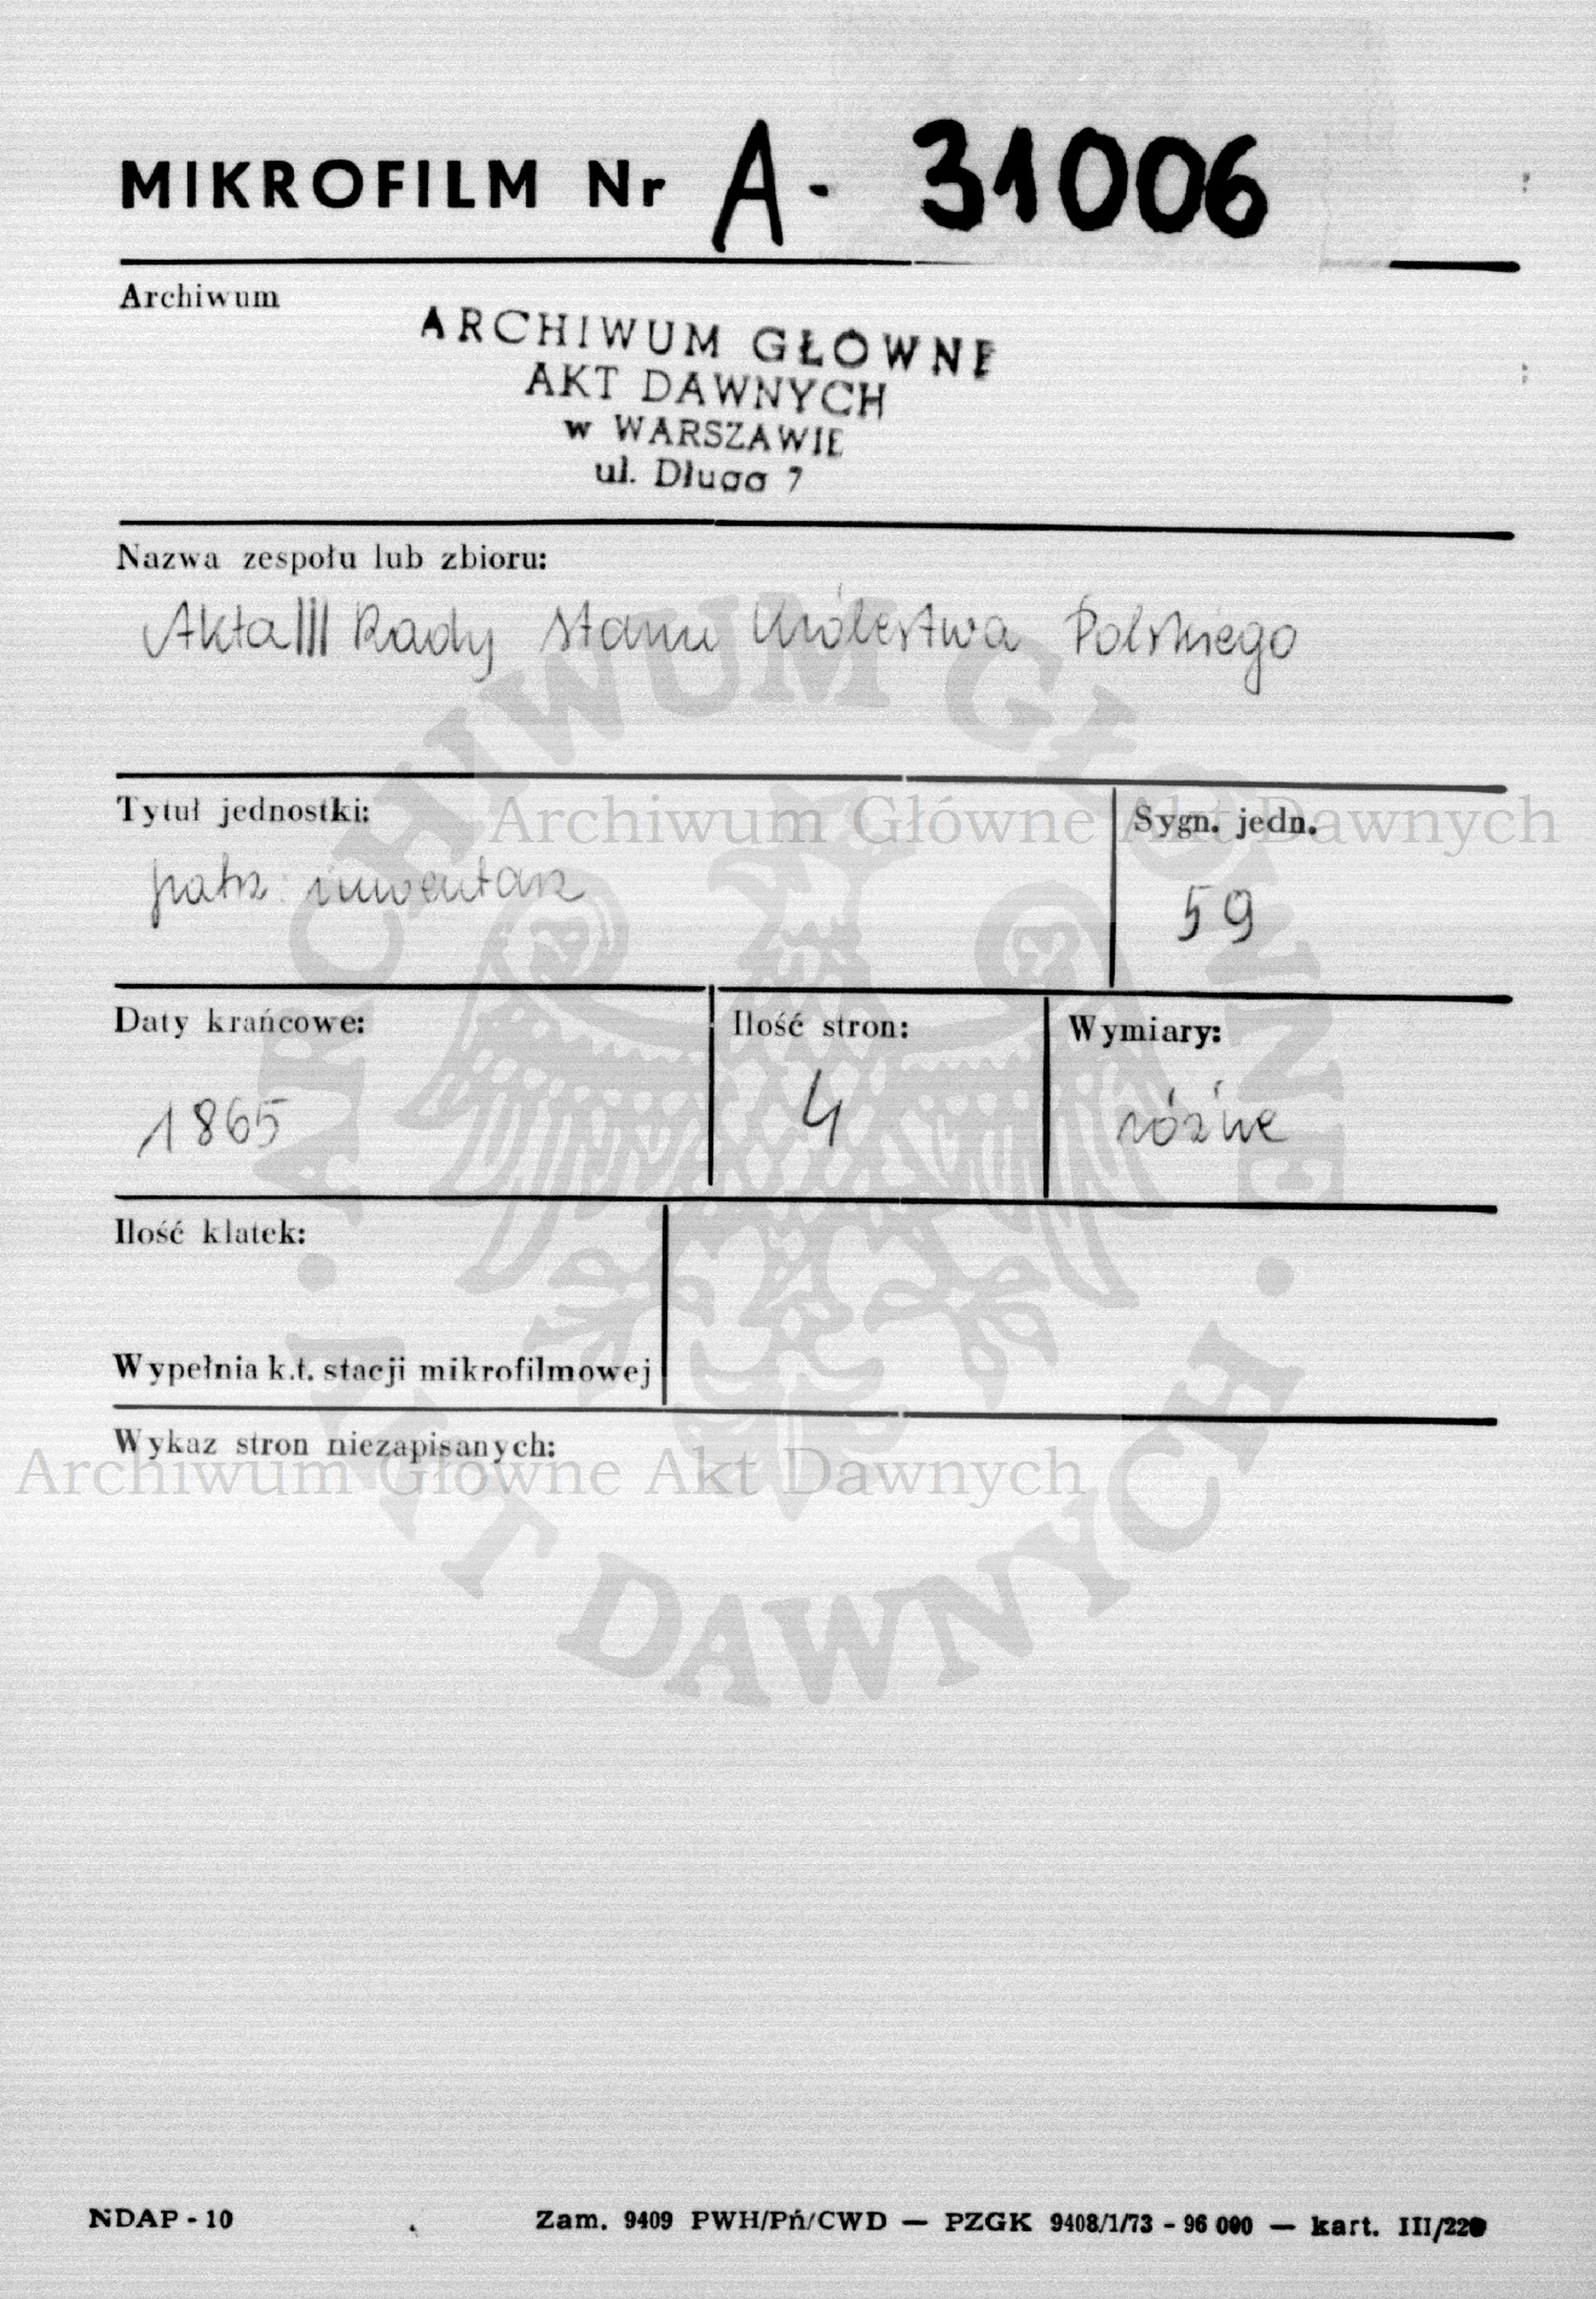 MIKROFILM Nr A- 31006
Archiwum
ARCHIWUM GŁÓWNE
AKT DAWNYCH
w WARSZAWIE
ul. Długa 7
Nazwa zespołu lub zbioru:
Akta III Rady Stanu Królestwa Polskiego
Tytuł jednostki:
Sygn. jedn.
Archiwum Główne Akt Dawnych
patrz: inwentarz
59
Daty krańcowe:
Ilość stron:
Wymiary:
1865
4
różne
Ilość klatek:
Wypełnia k.t. stacji mikrofilmowej
Wykaz stron niezapisanych:
Archiwum Główne Akt Dawnych
ARCHIWUM GŁÓWNE · AKT DAWNYCH ·
NDAP - 10
Zam. 9409 PWH/Pń/CWD — PZGK 9408/1/73 - 96 000 — kart. III/220